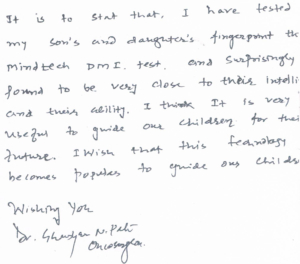 It is to stat that, I have tested
my son's and daughter's fingerprint th
Mindtech DMI. test. and surprisingly
found to be very close to their Intelli
and their ability. I think It is very
useful to guide our children for thei
future. I wish that this technology
becomes populer to guide our childr
Wishing You
Dr.